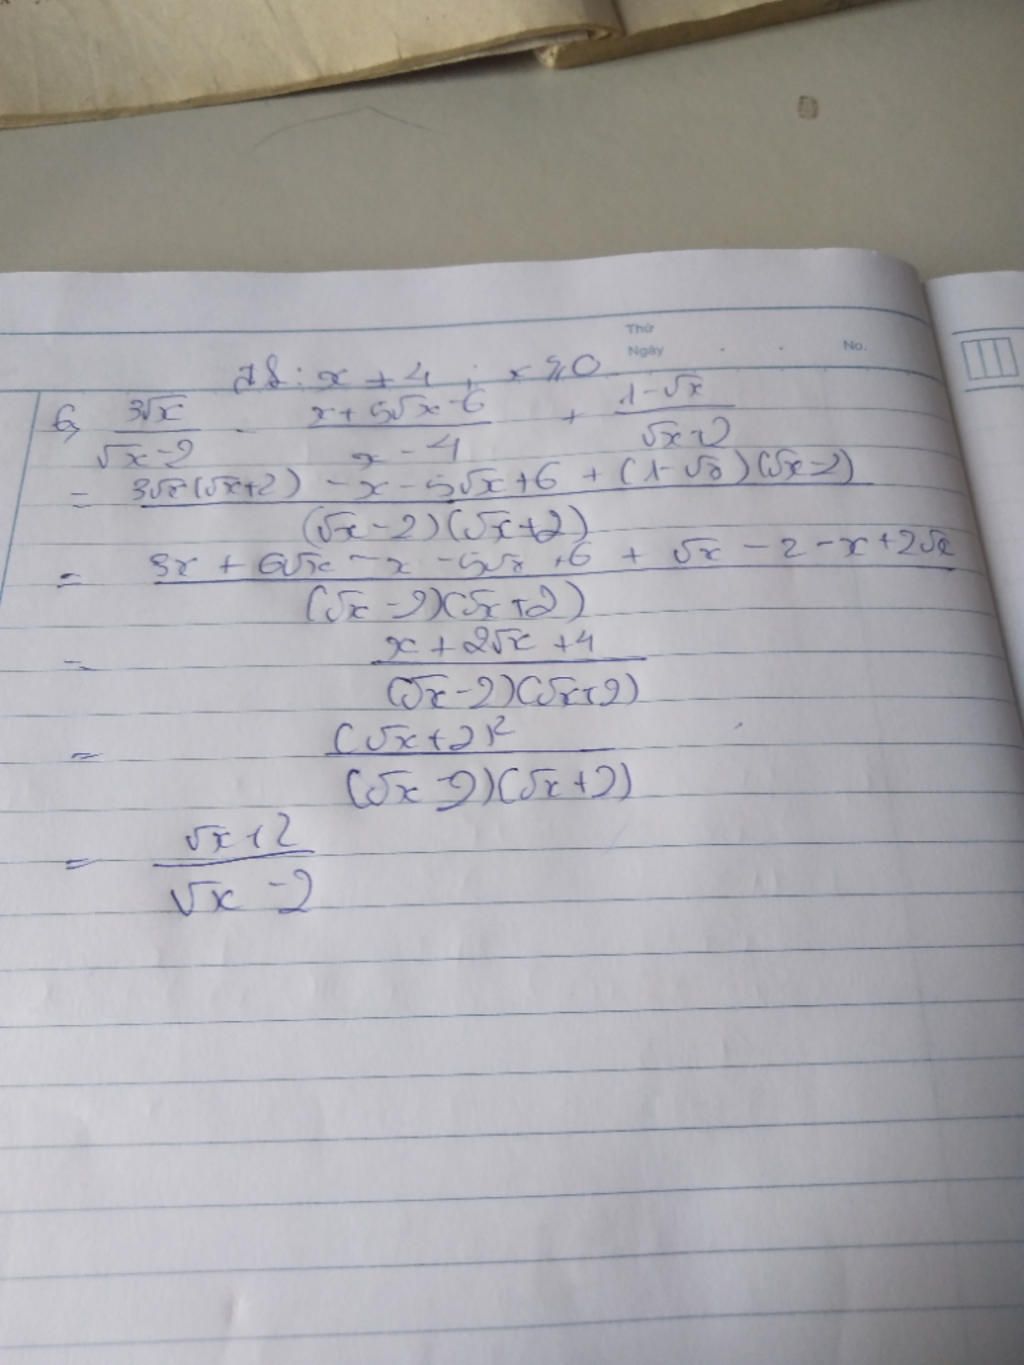 Thứ
Ngày . . No.
ĐS: x ≠ 4 ; x ⩾ 0
6, 3√x/(√x-2) - (x+5√x-6)/(x-4) + (1-√x)/(√x+2)
= (3√x(√x+2) - x - 5√x+6 + (1-√x)(√x-2))/((√x-2)(√x+2))
= (3x + 6√x - x - 5√x + 6 + √x - 2 - x + 2√x)/((√x-2)(√x+2))
= (x + 2√x + 4)/((√x-2)(√x+2))
= (√x+2)²/((√x-2)(√x+2))
= (√x+2)/(√x-2)